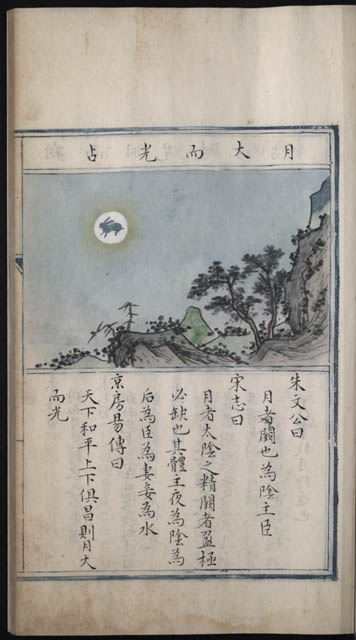 月大而光占
朱文公曰
月者闕也為陰主臣
宋志曰
月者太陰之精闕者盈極
必缺也其體主夜為陰為
后為臣為妻妾為水
京房易傳曰
天下和平上下俱昌則月大
而光